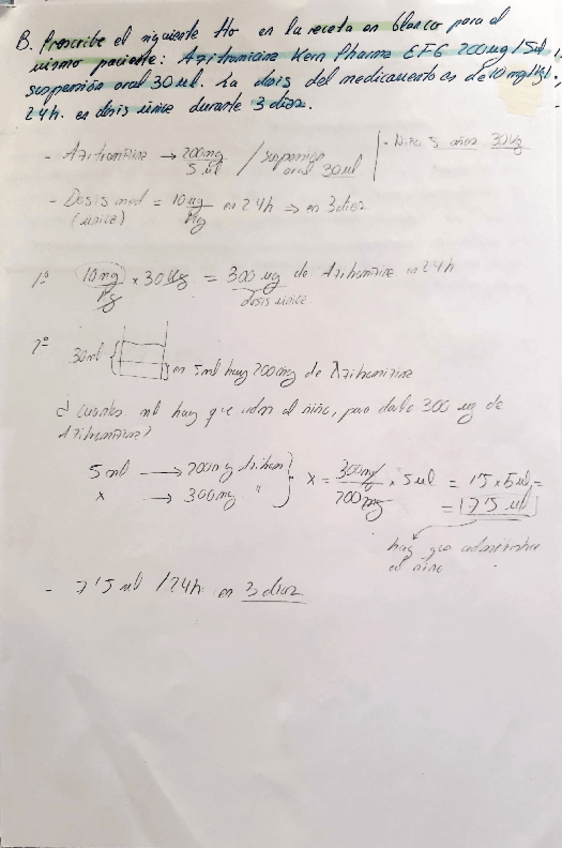 B. Prescribe el siguiente tto en la receta en blanco para el
mismo paciente: Azitromicina Kern Pharma EFG 200mg/5ml,
suspensión oral 30 ml. La dosis del medicamento es de 10 mg/kg/
24h. en dosis única durante 3 días.
- Azitromicina → 200mg/5 ml / suspensión oral 30ml
- Niño 5 años 30kg
- Dosis med = 10mg/kg en 24h ⇒ en 3 días
(única)
1º 10mg/kg × 30kg = 300 mg de Azitromicina en 24h
dosis única
2º 30ml { en 5ml hay 200mg de Azitromicina
¿Cuántos ml hay que adm al niño, para darle 300 mg de
Azitromicina?
5ml → 200mg Azitrom
x → 300mg "
} x = 300mg/200mg × 5ml = 1'5 × 5ml =
= 7'5 ml
hay que administrar
al niño
- 7'5 ml /24h en 3 días